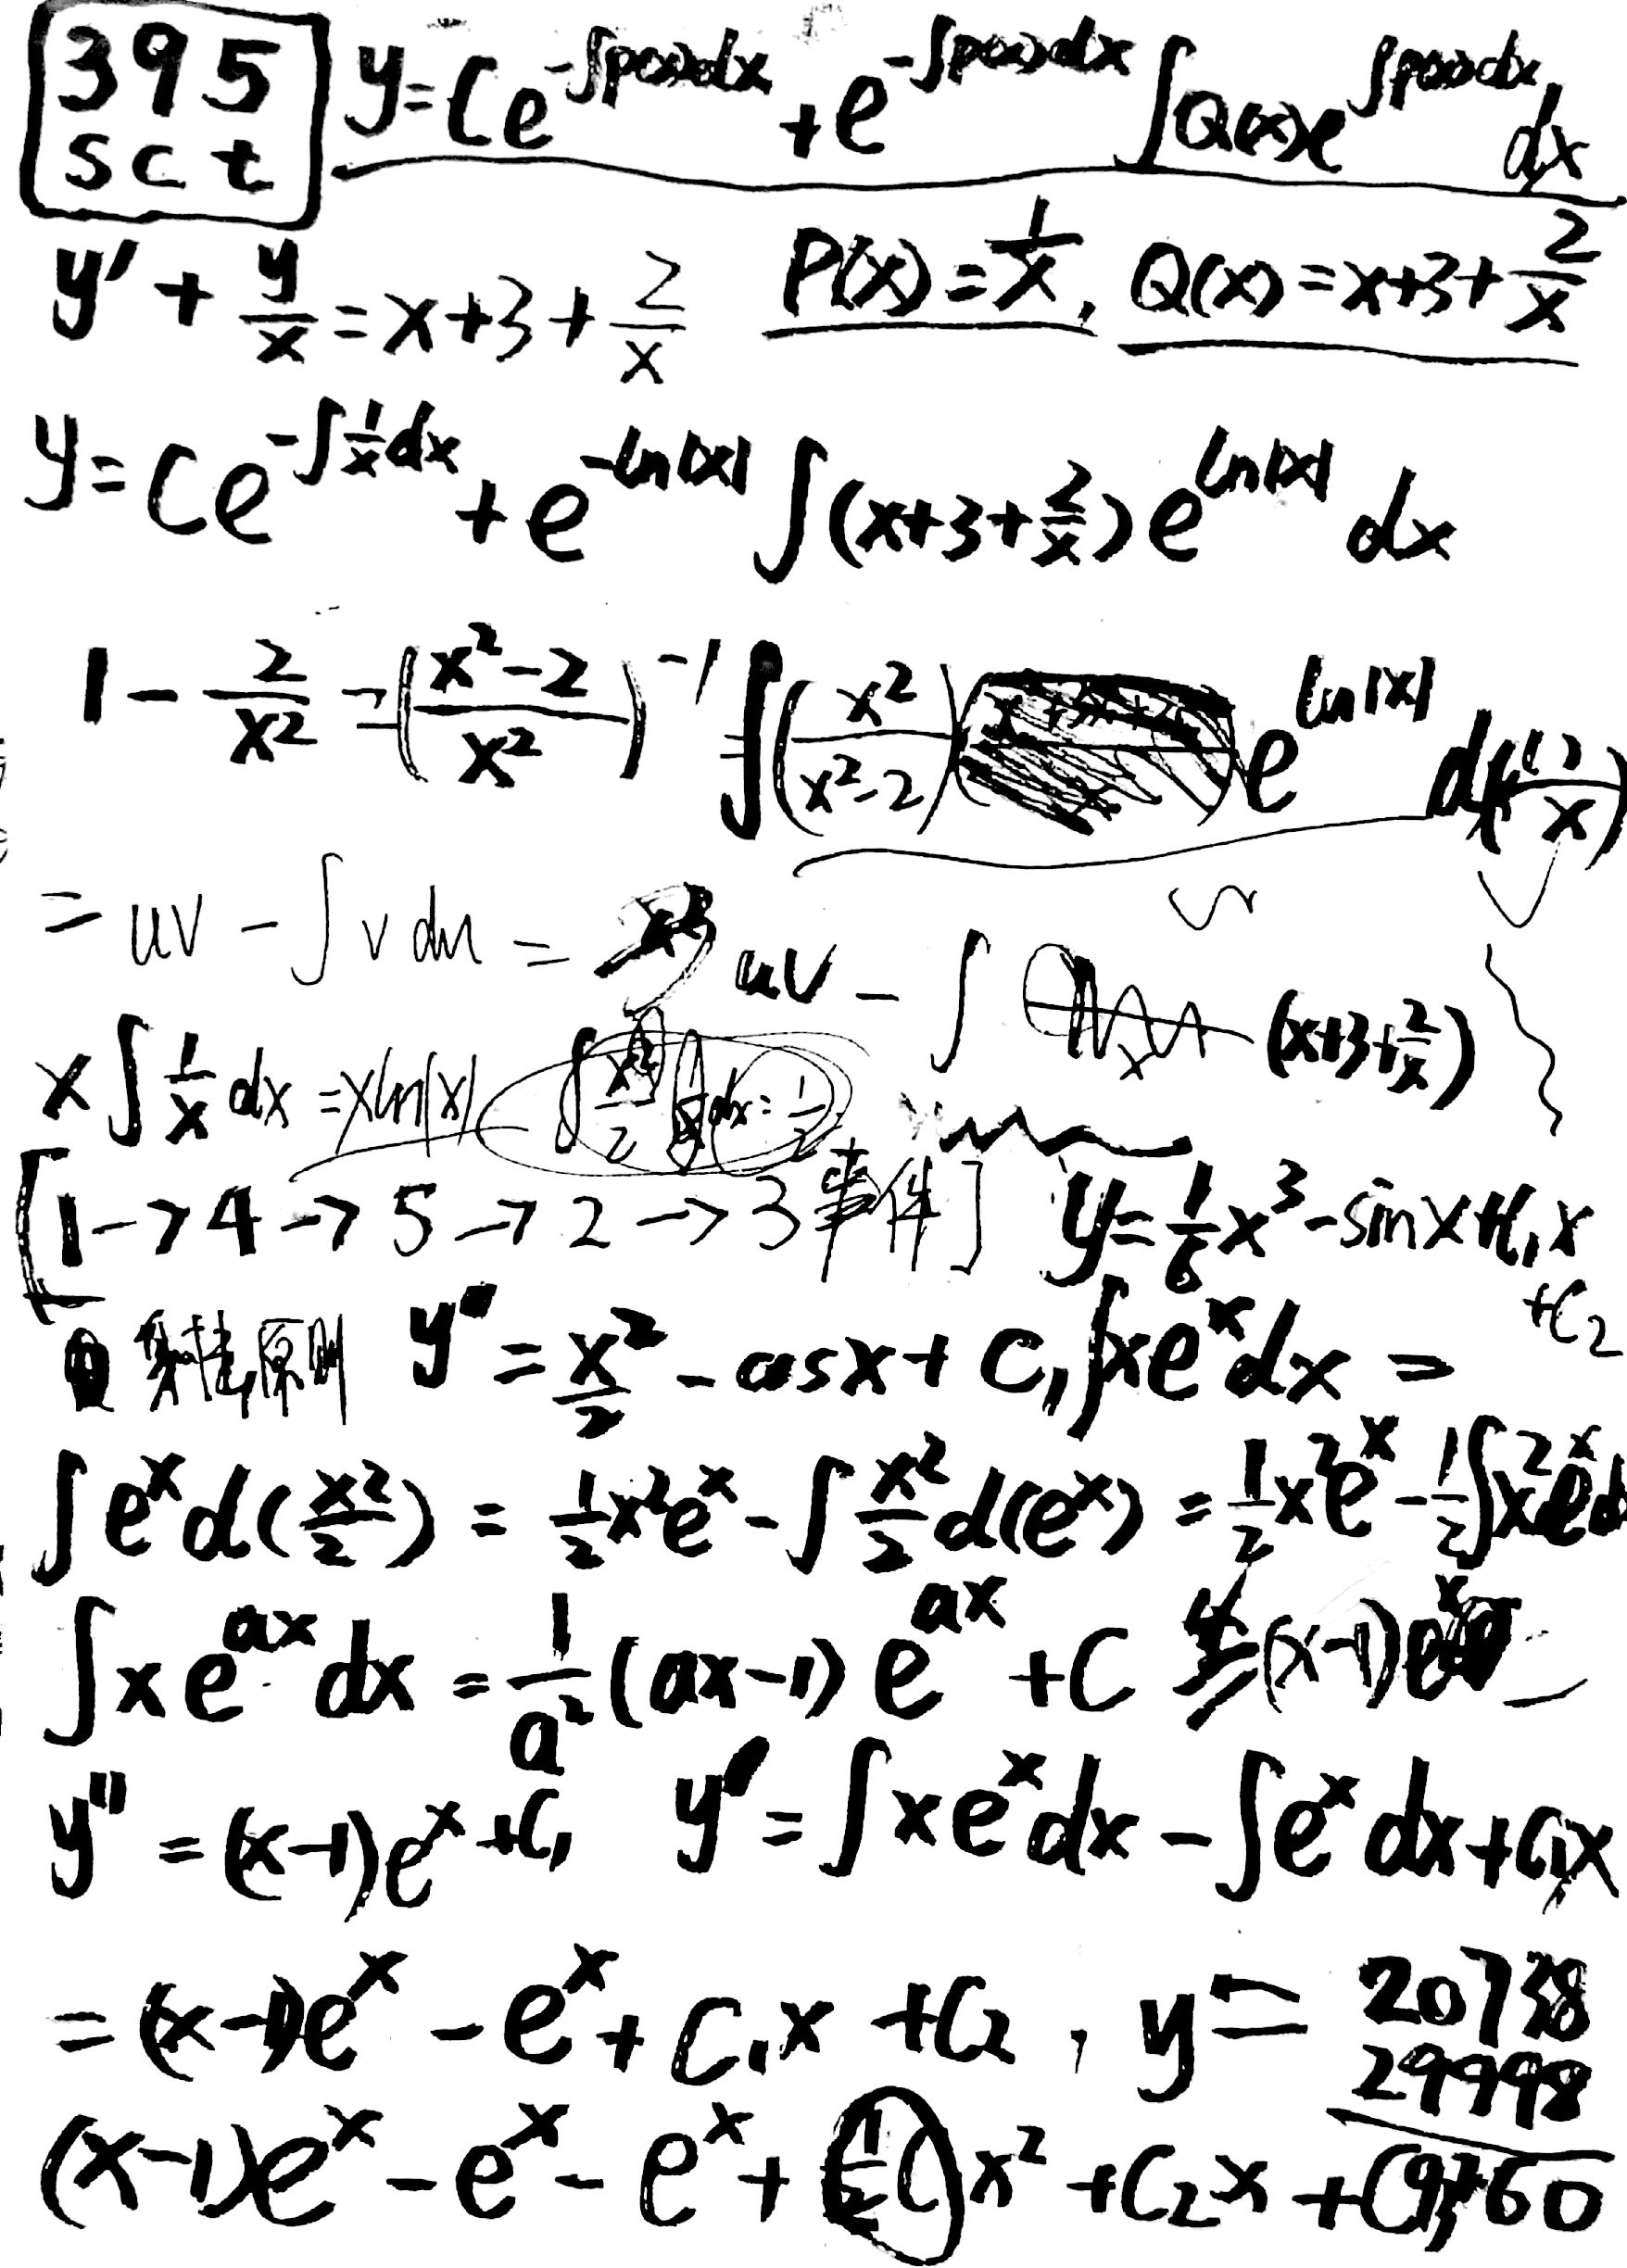 395
sct
y=Ce^{-∫p(x)dx}+e^{-∫p(x)dx}∫Q(x)e^{∫p(x)dx}dx
y'+\frac{y}{x}=x+3+\frac{2}{x} P(x)=\frac{1}{x}, Q(x)=x+3+\frac{2}{x}
y=Ce^{-∫\frac{1}{x}dx}+e^{-ln|x|}∫(x+3+\frac{2}{x})e^{ln|x|}dx
1-\frac{2}{x^2}=(\frac{x^2-2}{x^2})^{-1} ∫(\frac{x^2}{x^2-2})e^{ln|x|}d
=uv-∫vdu= uv-∫ (x+3+\frac{2}{x})
x∫\frac{1}{x}dx=xln|x|
[1→4→5→2→3事件] y=\frac{1}{6}x^3-sinx+C_1x
+C_2
原则 y'=\frac{x^2}{2}-cosx+C_1 ∫xe^xdx=
∫e^xd(\frac{x^2}{2})=\frac{1}{2}x^2e^x-∫\frac{x^2}{2}d(e^x)=\frac{1}{2}x^2e^x-\frac{1}{2}∫x^2e^xd
∫xe^{ax}dx=\frac{1}{a^2}(ax-1)e^{ax}+C (x-1)e^x
y''=(x-1)e^x+C_1 y'=∫xe^xdx-∫e^xdx+C_1x
=(x-1)e^x-e^x+C_1x+C_2, y=
20738
29998
(x-1)e^x-e^x-e^x+(\frac{1}{2}C)x^2+C_2x+C_3
9260